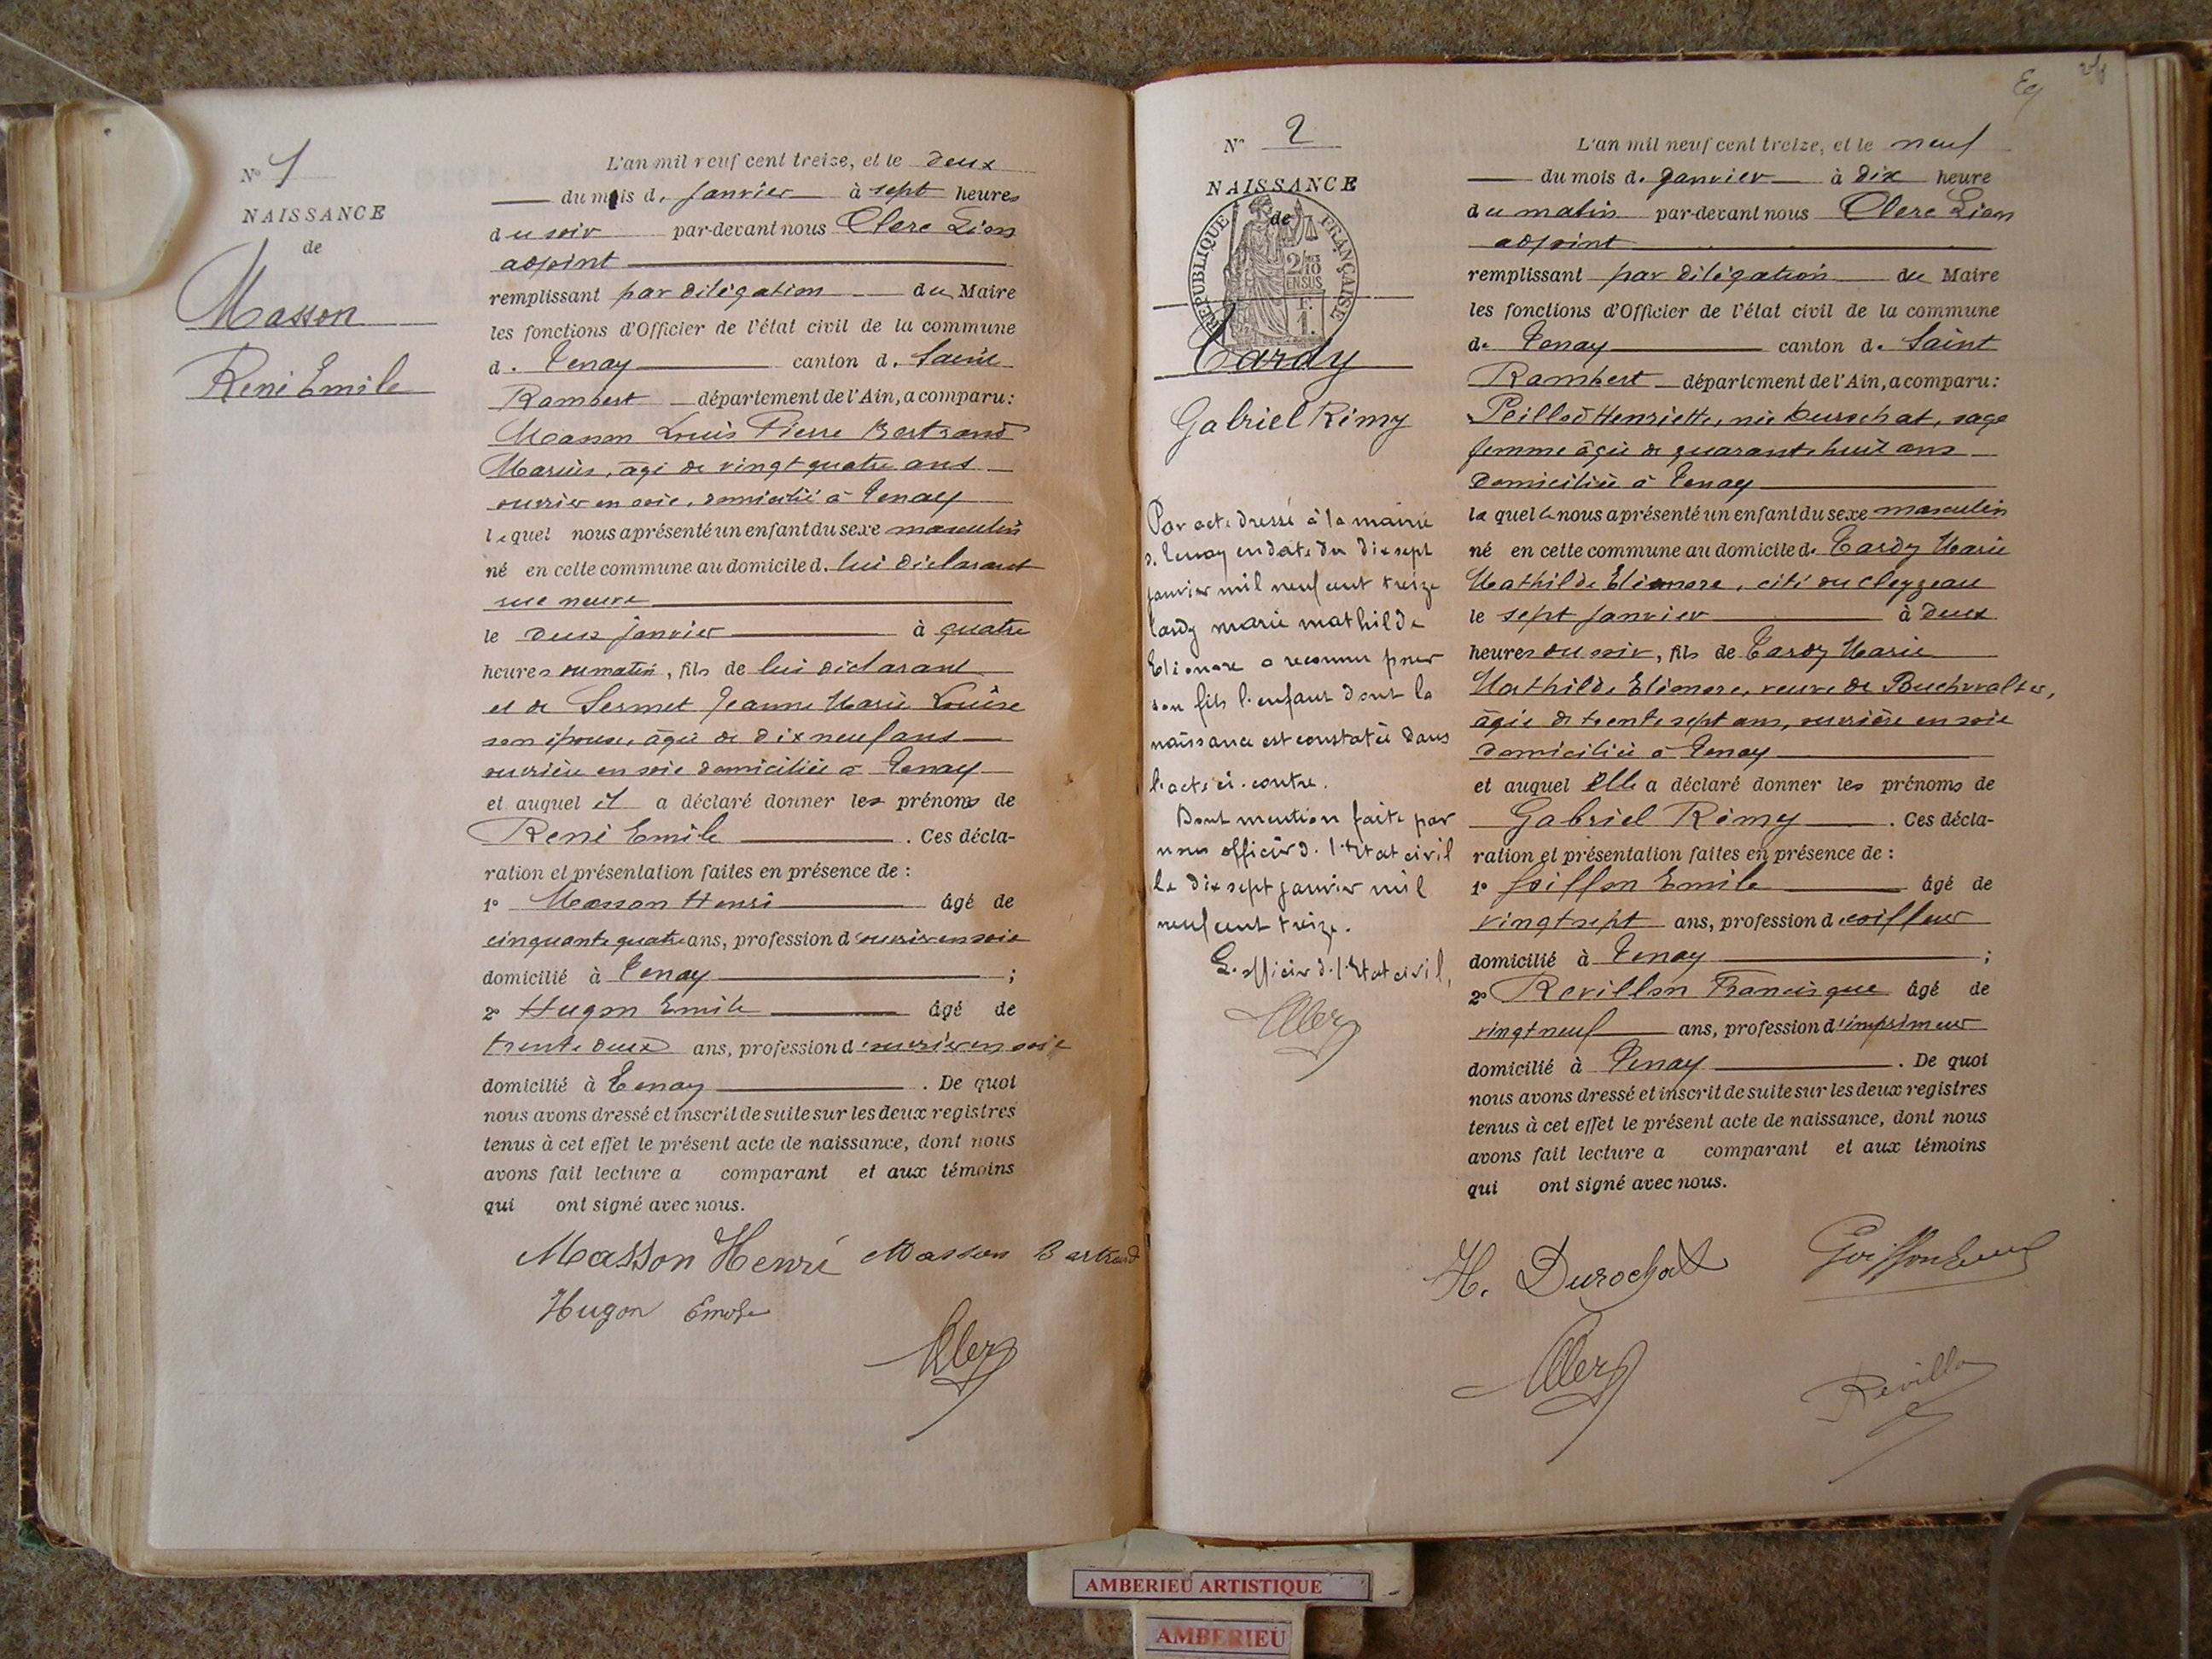 N° 1
NAISSANCE
de
Masson
René Emile
L'an mil neuf cent treize, et le deux
du mois de janvier à sept heures
du soir par-devant nous Clerc Léon
adjoint
remplissant par délégation du Maire
les fonctions d'Officier de l'état civil de la commune
de Tenay canton de Saint
Rambert département de l'Ain, a comparu :
Masson Louis Pierre Bertrand
Marius, âgé de vingt quatre ans
ouvrier en soie, domicilié à Tenay
lequel nous a présenté un enfant du sexe masculin
né en cette commune au domicile de lui déclarant
rue neuve
le deux janvier à quatre
heures du matin, fils de lui déclarant
et de Sermet Jeanne Marie Louise
son épouse, âgée de dix neuf ans
ouvrière en soie domiciliée à Tenay
et auquel il a déclaré donner les prénoms de
René Emile . Ces décla-
ration et présentation faites en présence de :
1° Masson Henri âgé de
cinquante quatre ans, profession d'ouvrier en soie
domicilié à Tenay ;
2° Hugon Emile âgé de
trente deux ans, profession d'ouvrier en soie
domicilié à Tenay . De quoi
nous avons dressé et inscrit de suite sur les deux registres
tenus à cet effet le présent acte de naissance, dont nous
avons fait lecture a comparant et aux témoins
qui ont signé avec nous.
Masson Henri Masson Bertrand
Hugon Emile
Clerc
N° 2
NAISSANCE
de
RÉPUBLIQUE FRANÇAISE
2/10
EN SUS
F.
1.
Tardy
Gabriel Rémy
Par acte dressé à la mairie
de Tenay en date du dix sept
janvier mil neuf cent treize
Tardy marie mathilde
Eléonore a reconnu pour
son fils l'enfant dont la
naissance est constatée dans
l'acte ci-contre.
Dont mention faite par
nous officier de l'Etat civil
le dix sept janvier mil
neuf cent treize.
L'officier de l'Etat civil,
Clerc
L'an mil neuf cent treize, et le neuf
du mois de janvier à dix heure
du matin par-devant nous Clerc Léon
adjoint
remplissant par délégation du Maire
les fonctions d'Officier de l'état civil de la commune
de Tenay canton de Saint
Rambert département de l'Ain, a comparu :
Peillod Henriette, née Durochat, sage
femme âgée de quarante huit ans
domiciliée à Tenay
laquelle nous a présenté un enfant du sexe masculin
né en cette commune au domicile de Tardy Marie
Mathilde Eléonore, cité du Cleyzeau
le sept janvier à deux
heures du soir, fils de Tardy Marie
Mathilde Eléonore, veuve de Buchwalter,
âgée de trente sept ans, ouvrière en soie
domiciliée à Tenay
et auquel elle a déclaré donner les prénoms de
Gabriel Rémy . Ces décla-
ration et présentation faites en présence de :
1° Goiffon Emile âgé de
vingt sept ans, profession de coiffeur
domicilié à Tenay ;
2° Revillon Francisque âgé de
vingt neuf ans, profession d'imprimeur
domicilié à Tenay . De quoi
nous avons dressé et inscrit de suite sur les deux registres
tenus à cet effet le présent acte de naissance, dont nous
avons fait lecture a comparant et aux témoins
qui ont signé avec nous.
H. Durochat Goiffon Emile
Clerc Révillon
AMBERIEU ARTISTIQUE
AMBERIEU